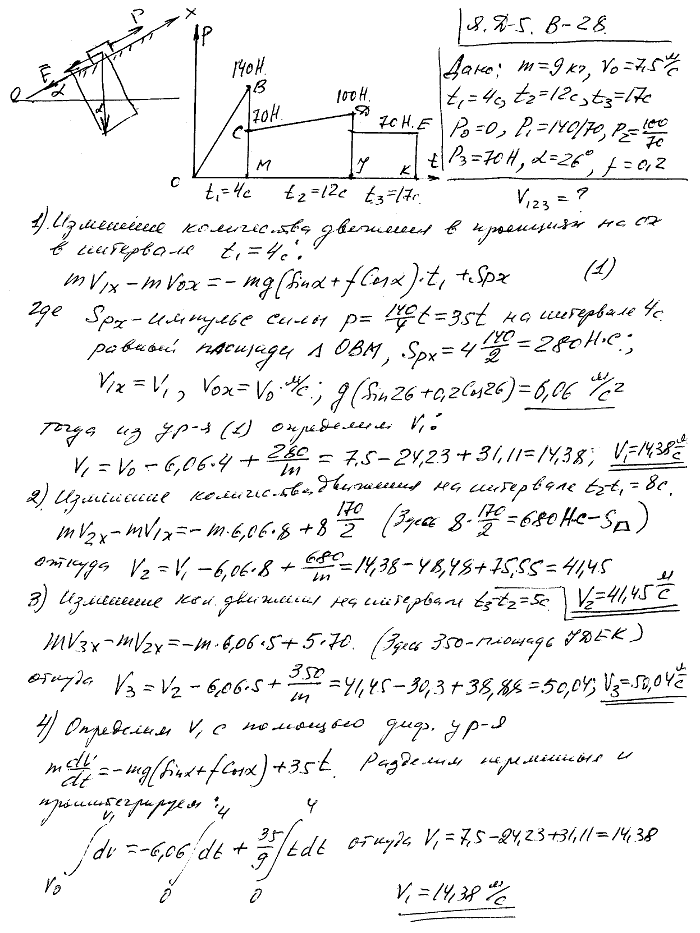 Я.Д-5. В-28.
Дано: m=9кг, V0=7.5 м/с
t1=4с, t2=12с, t3=17с
P0=0, P1=140/70, P2=100/70
P3=70Н, α=26°, f=0,2
V123=?
P
X
F
P
α
O
140Н.
B
70Н.
C
100Н.
D
70Н. E
O
M
J
K
t
t1=4с
t2=12с
t3=17с
1). Изменение количества движения в проекции на ох
в интервале t1=4с:
mV1x-mV0x=-mg(Sinα+fCosα)·t1+Spx (1)
где Spx-импульс силы p=140/4 t=35t на интервале 4с.
равный площади Δ OBM, Spx=4·140/2=280Н·с;
V1x=V1, V0x=V0 м/с; g(Sin26+0,2Cos26)=6,06 м/с2
тогда из ур-я (1) определим V1:
V1=V0-6,06·4+280/m=7,5-24,23+31,11=14,38; V1=14,38 м/с
2). Изменение количества движения на интервале t2-t1=8с.
mV2x-mV1x=-m·6,06·8+8 170/2 (Здесь 8·170/2=680Нс-S)
откуда V2=V1-6,06·8+680/m=14,38-48,48+75,55=41,45
V2=41,45 м/с
3) Изменение кол. движения на интервале t3-t2=5с
mV3x-mV2x=-m·6,06·5+5·70. (Здесь 350-площадь JDEK)
откуда V3=V2-6,06·5+350/m=41,45-30,3+38,88=50,04; V3=50,04 м/с
4) Определим V1 с помощью диф. ур-я
m dV/dt=-mg(Sinα+fCosα)+35t. Разделим переменные и
проинтегрируем:
∫V0V1 dv=-6,06 ∫04 dt+35/9 ∫04 tdt откуда V1=7,5-24,23+31,11=14,38
V1=14,38 м/с